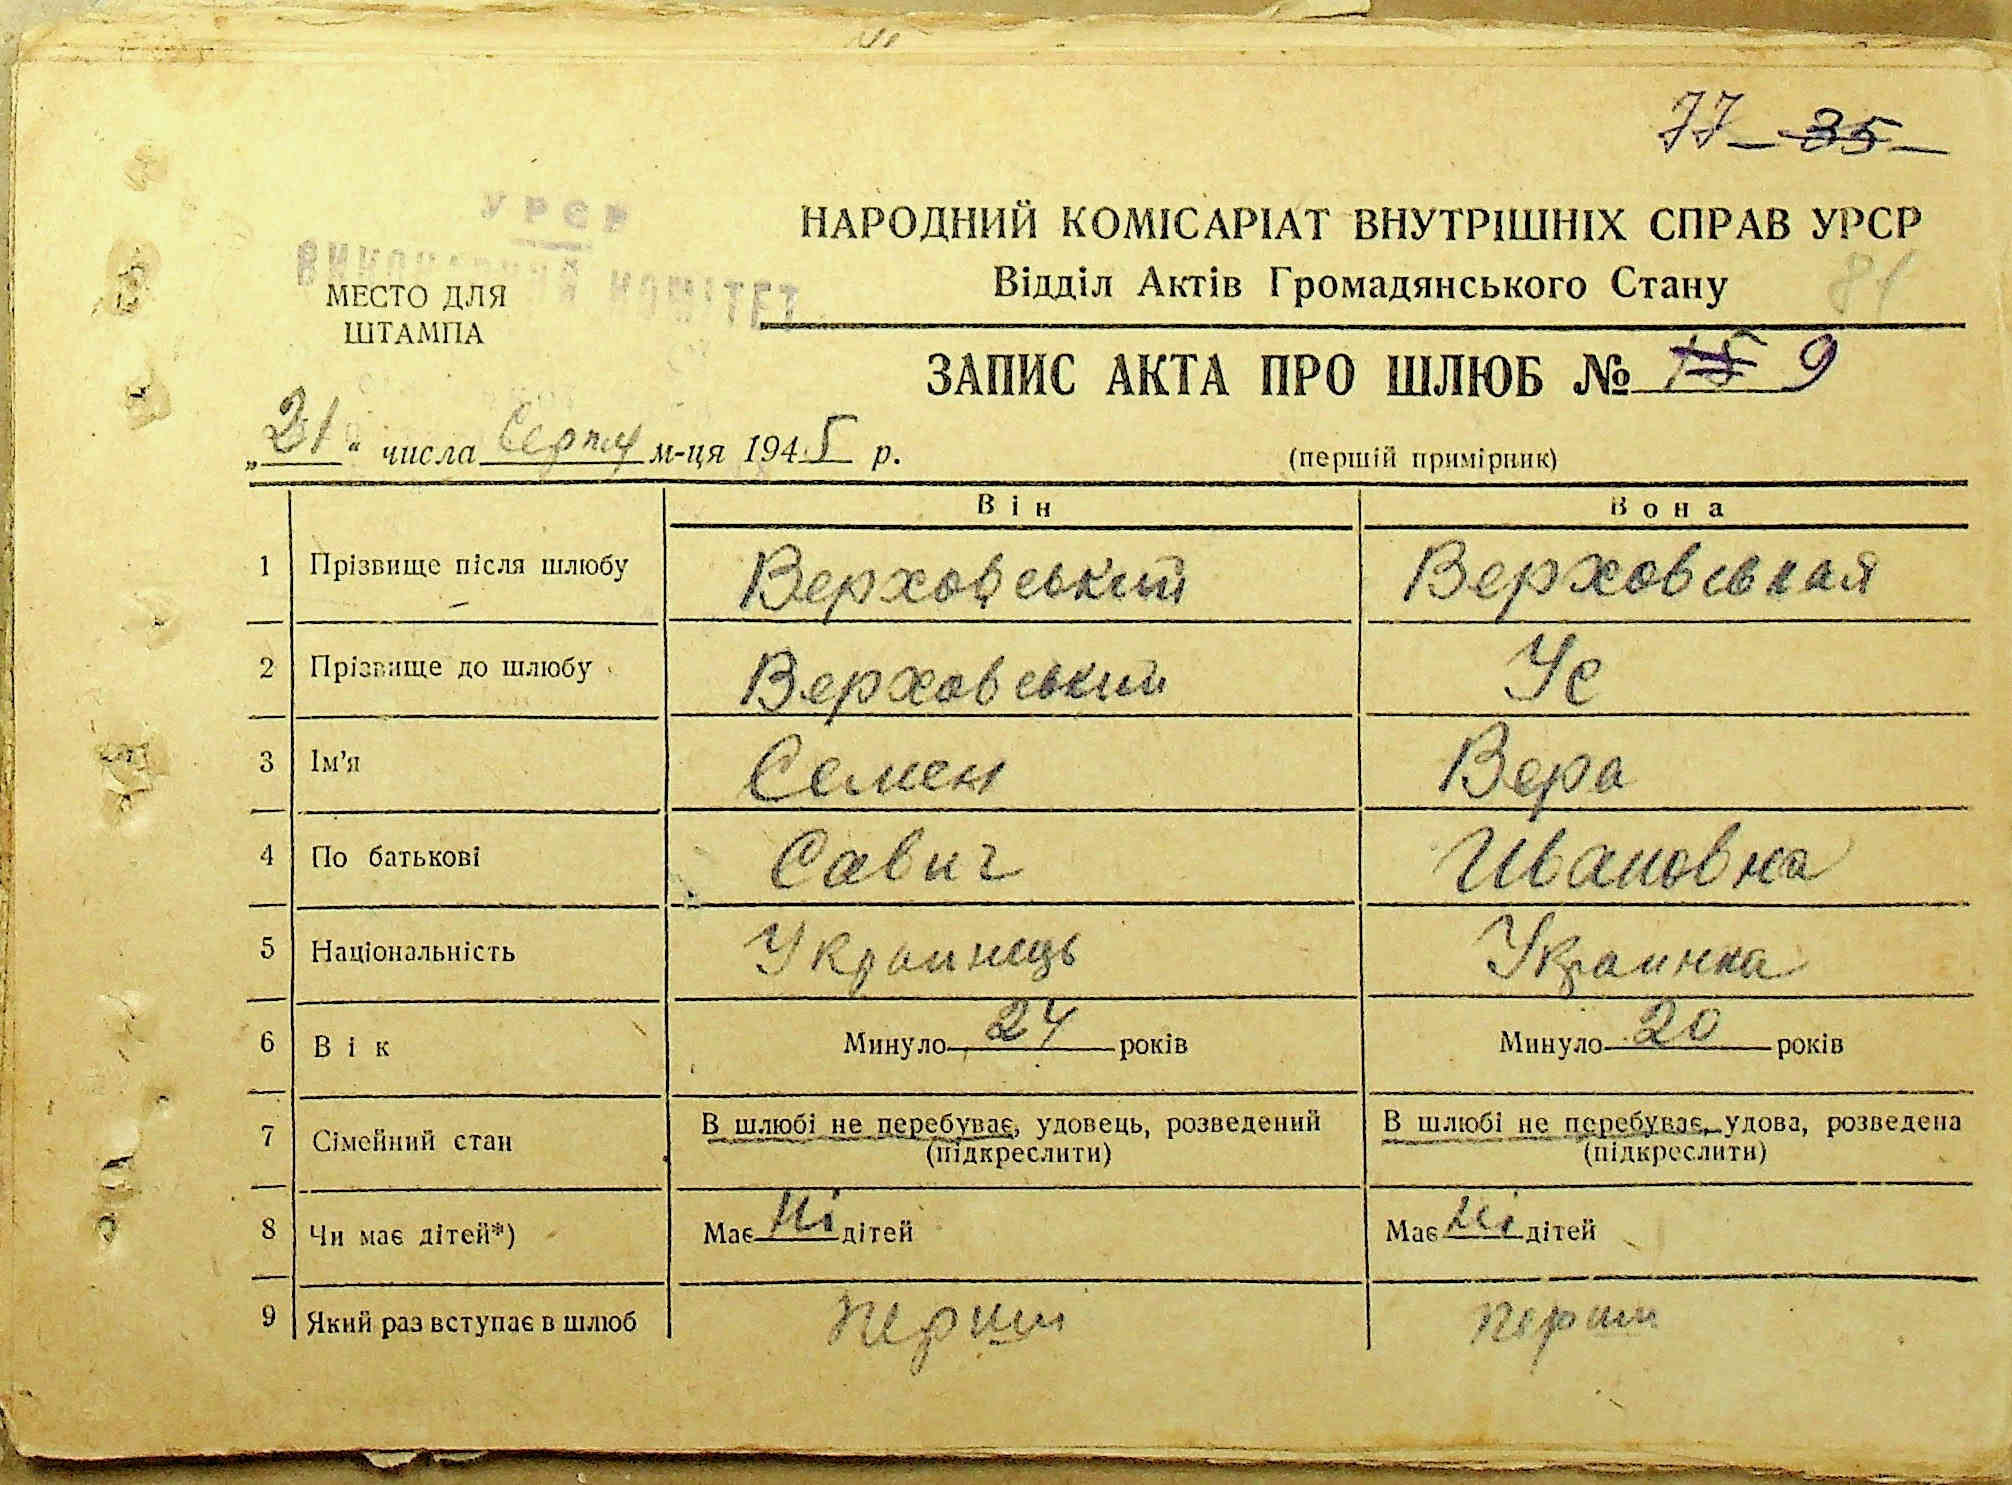 77 – 35 –
УРСР
ВИКОНАВЧИЙ КОМІТЕТ
НАРОДНИЙ КОМІСАРІАТ ВНУТРІШНІХ СПРАВ УРСР
Відділ Актів Громадянського Стану
81
МЕСТО ДЛЯ
ШТАМПА
ЗАПИС АКТА ПРО ШЛЮБ № 15 9
„21“ числа Серпня м-ця 1945 р.
(першій примірник)
Він Вона
1 Прізвище після шлюбу Верховський Верховськая
2 Прізвище до шлюбу Верховський Ус
3 Ім’я Семен Вера
4 По батькові Савич Ивановна
5 Національність Украинець Украинка
6 Вік Минуло 24 років Минуло 20 років
7 Сімейний стан В шлюбі не перебуває, удовець, розведений В шлюбі не перебуває, удова, розведена
(підкреслити) (підкреслити)
8 Чи має дітей*) Має Ні дітей Має Ні дітей
9 Який раз вступає в шлюб перший перший